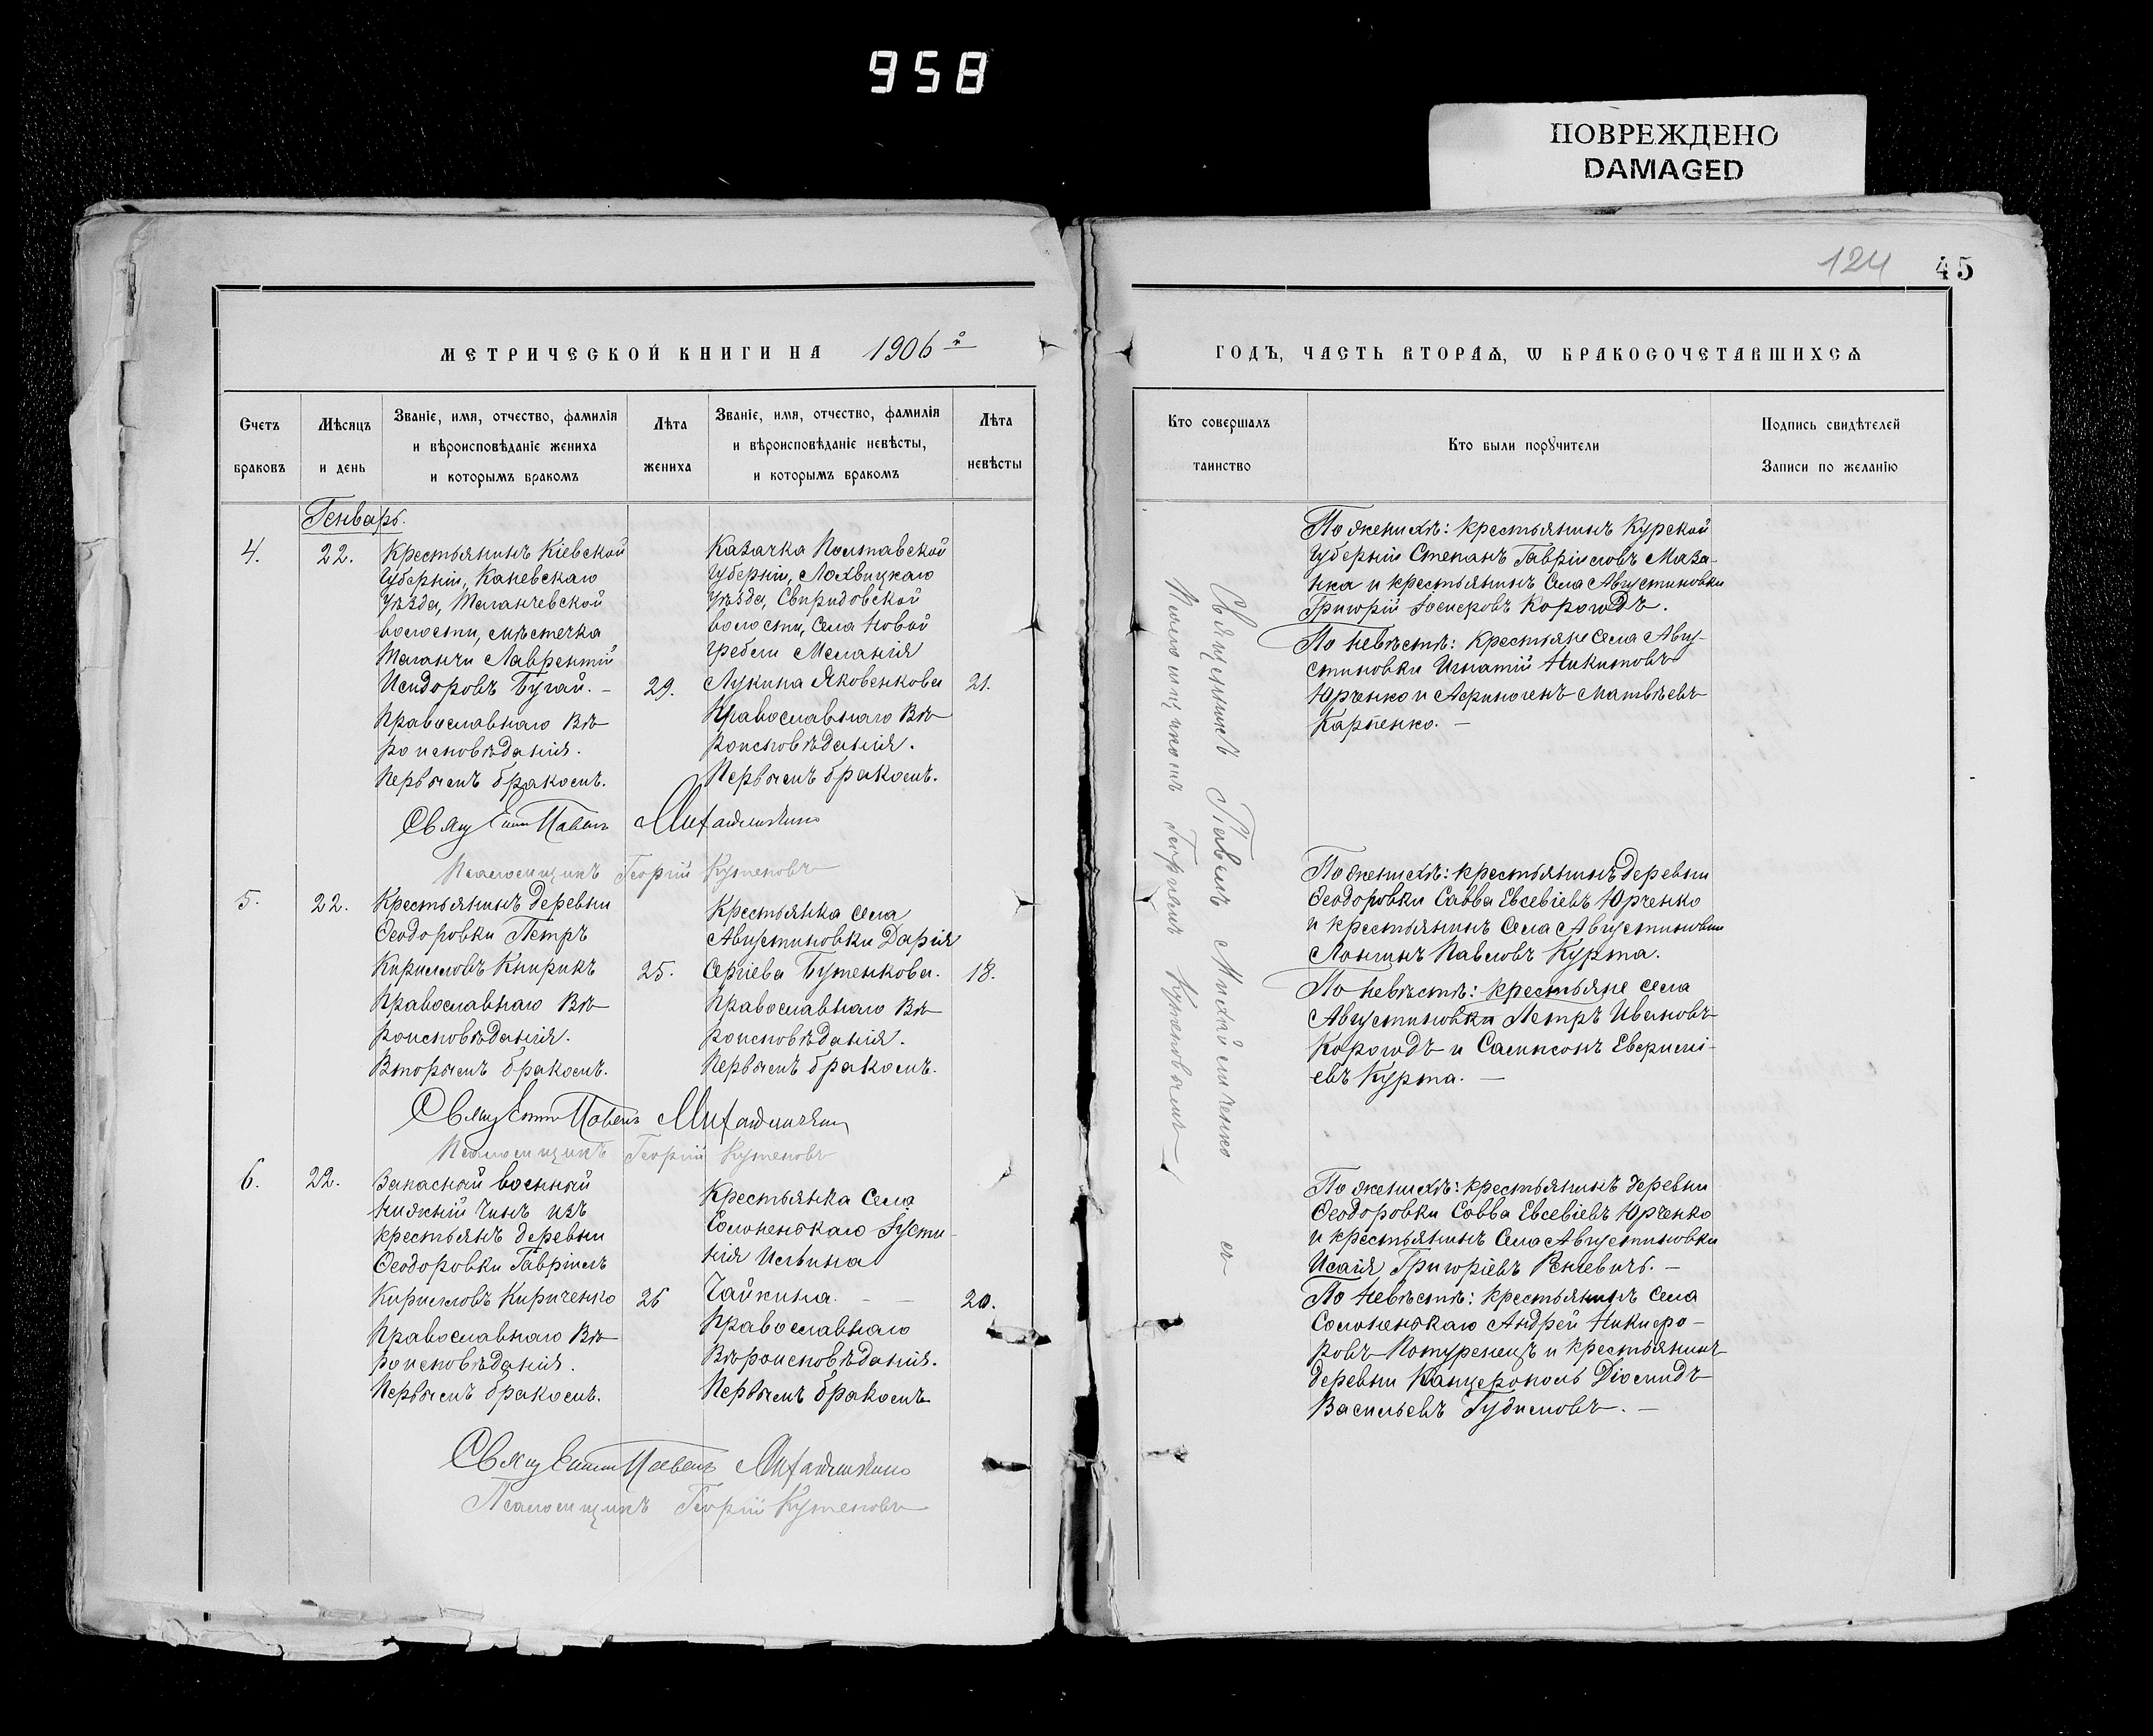 958
ПОВРЕЖДЕНО
DAMAGED
124
45
МЕТРИЧЕСКОЙ КНИГИ НА 1906й
Счетъ
браковъ
Мѣсяцъ
и день
Званіе, имя, отчество, фамилія
и вѣроисповѣданіе жениха
и которымъ бракомъ
Лѣта
жениха
Званіе, имя, отчество, фамилія
и вѣроисповѣданіе невѣсты,
и которымъ бракомъ
Лѣта
невѣсты
Генварь.
4.
22.
Крестьянинъ Кіевской
Губерніи, Каневскаго
уѣзда, Таганчевской
волости, мѣстечка
Таганчи Лаврентій
Исидоровъ Бугай. —
Православнаго Вѣ-
роисповѣданія.
Первымъ бракомъ.
29.
Казачка Полтавской
Губерніи, Лохвицкаго
уѣзда, Свиридовской
волости, села Новой
гребли Меланія
Лукина Яковенкова
Православнаго Вѣ-
роисповѣданія.
Первымъ бракомъ.
21.
Священникъ Павелъ
Псаломщикъ Георгій Кутеповъ
5.
22.
Крестьянинъ деревни
Ѳеодоровки Петръ
Кирилловъ Кнырикъ
Православнаго Вѣ-
роисповѣданія.
Вторымъ бракомъ.
25.
Крестьянка села
Августиновки Дарія
Сергіева Бутенкова.
Православнаго Вѣ-
роисповѣданія.
Первымъ бракомъ.
18.
Священникъ Павелъ
Псаломщикъ Георгій Кутеповъ
6.
22.
Запасный военный
нижній чинъ изъ
крестьянъ деревни
Ѳеодоровки Гавріилъ
Кирилловъ Кириченко
Православнаго Вѣ-
роисповѣданія.
Первымъ бракомъ.
26
Крестьянка села
Солоненькаго Густи-
нія Ильина
Чайкина. —
Православнаго
Вѣроисповѣданія.
Первымъ бракомъ
20.
Священникъ Павелъ
Псаломщикъ Георгій Кутеповъ
ГОДЪ, ЧАСТЬ ВТОРАѦ, Ѡ БРАКОСОЧЕТАВШИХСѦ
Кто совершалъ
таинство
Кто были порꙋчители
Подпись свидѣтелей
Записи по желанію
Священникъ Павелъ Михайличенко съ
Псаломщикомъ Георгіемъ Кутеповымъ
По женихѣ: крестьянинъ Курской
Губерніи Степанъ Гавріиловъ Маза-
нка и крестьянинъ села Августиновки
Григорій Іосифовъ Корогодъ.
По невѣстѣ: крестьяне села Авгу-
стиновки Игнатій Никитовъ
Юрченко и Афиногенъ Матвѣевъ
Карпенко. —
По женихѣ: крестьянинъ деревни
Ѳеодоровки Савва Евсевіевъ Юрченко
и крестьянинъ села Августиновки
Лонгинъ Павловъ Курта.
По невѣстѣ: крестьяне села
Августиновки Петръ Ивановъ
Корогодъ и Сампсонъ Евфимі-
евъ Курта. —
По женихѣ: крестьянинъ деревни
Ѳеодоровки Савва Евсевіевъ Юрченко
и крестьянинъ села Августиновки
Исаія Григоріевъ —
По невѣстѣ: крестьянинъ села
Солоненькаго Андрей Никифо-
ровъ Потуренецъ и крестьянинъ
деревни Канцерополь Діомидъ
Васильевъ Гудимовъ. —